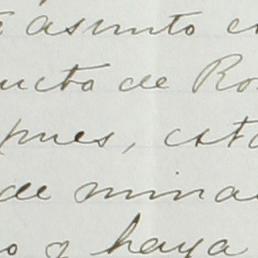 asunto
ucto de Ro
pues, est
de mina
o y haya